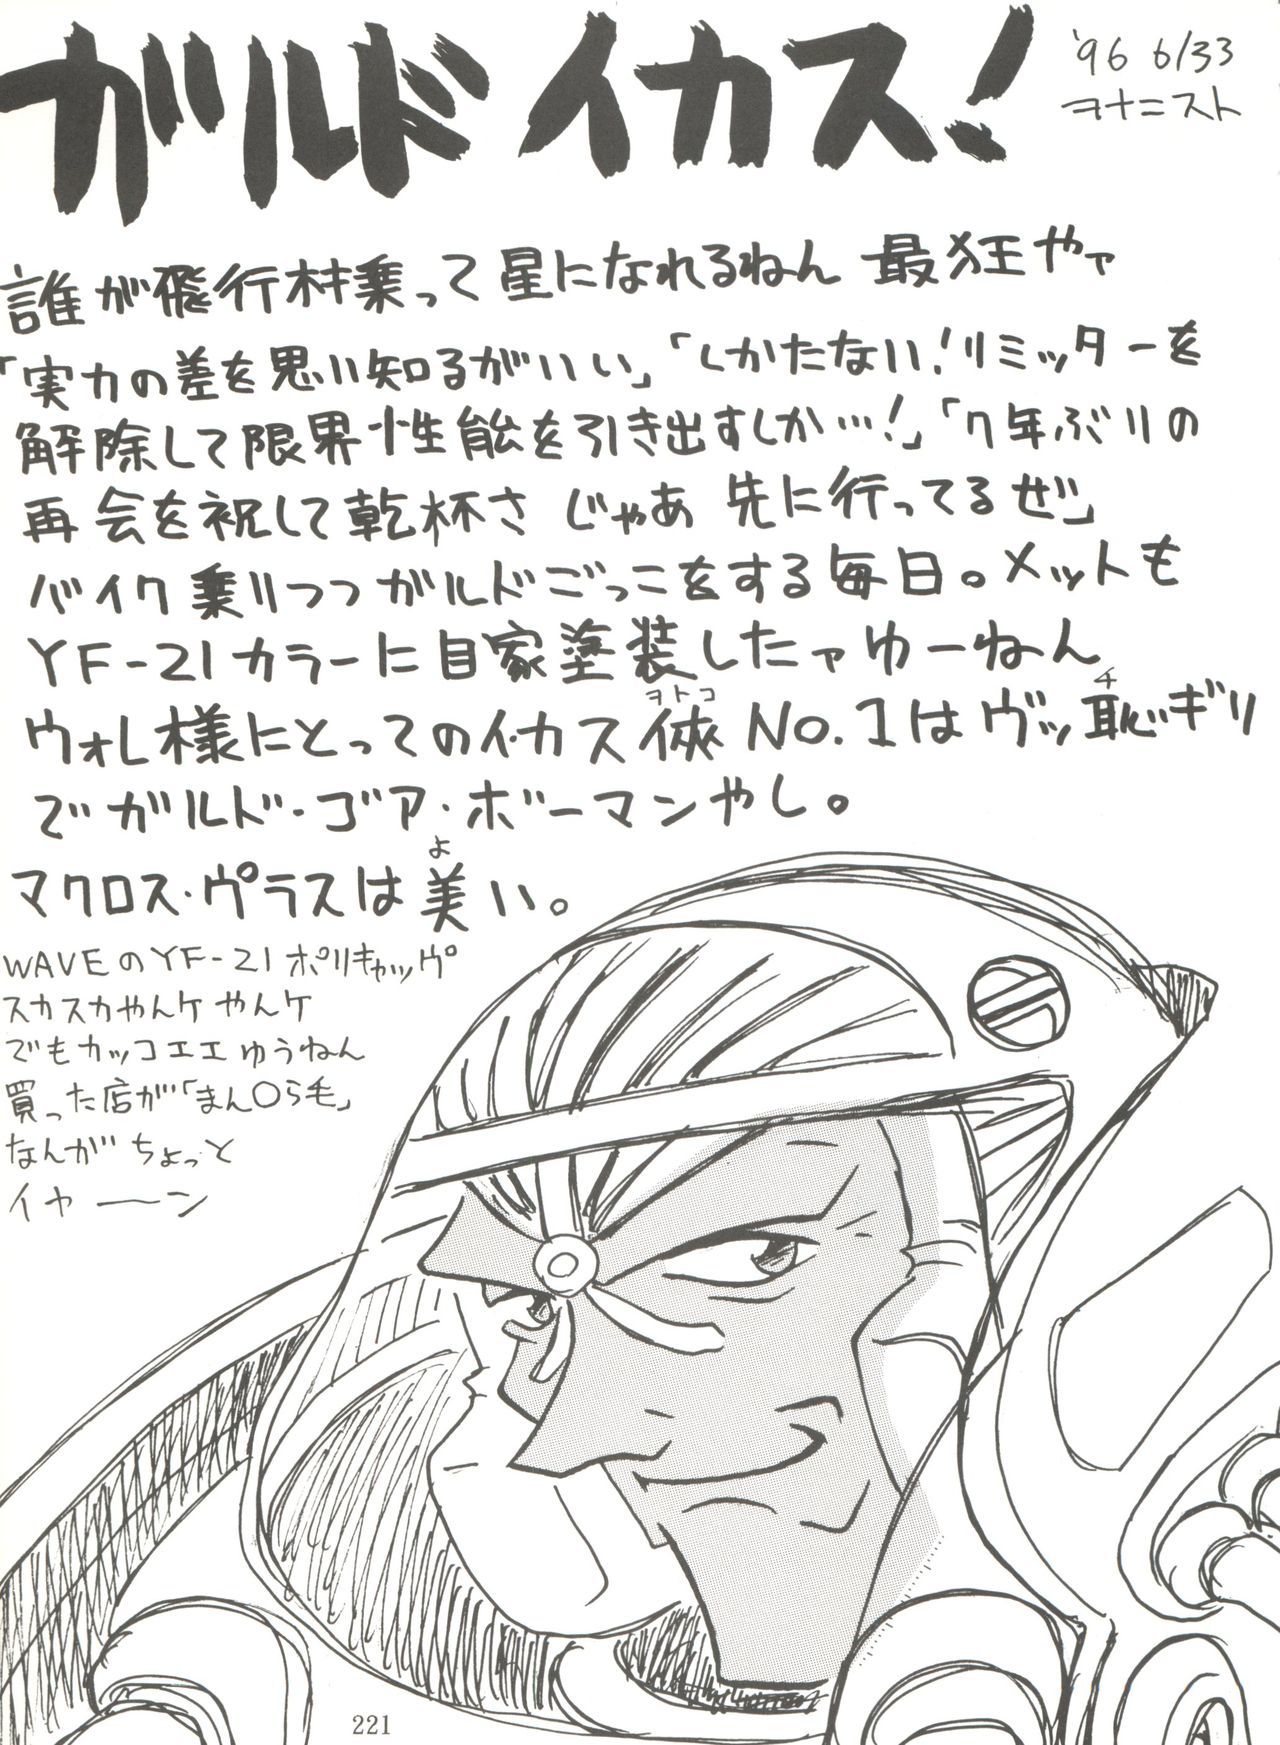 ガルド イカス!
'96 6/33
ヲナニスト
誰が飛行村乗って星になれるねん 最狂やァ
「実力の差を思い知るがいい」「しかたない!リミッターを
解除して限界性能を引き出すしか…!」「7年ぶりの
再会を祝して乾杯さ じゃあ 先に行ってるぜ」
バイク乗りつつガルドごっこをする毎日。メットも
YF-21カラーに自家塗装したャゆーねん
ヲトコ チ
ウォレ様にとってのイ・カス俠 No.1はヴッ恥ギリ
でガルド・ゴア・ボーマンやし。
よ
マクロス・プラスは美い。
WAVEのYF-21 ポリキャップ
スカスカやんケ やんケ
でもカッコエエゆうねん
買った店が「まん〇ら毛」
なんがちょっと
イャーン
221